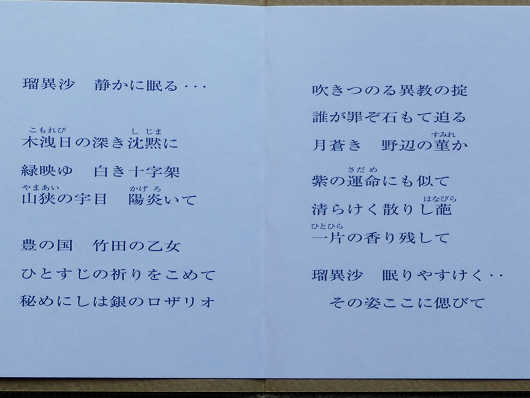 瑠異沙　静かに眠る・・・
木洩日の深き沈黙に
緑映ゆ　白き十字架
山狭の宇目　陽炎いて
豊の国　竹田の乙女
ひとすじの祈りをこめて
秘めにしは銀のロザリオ
吹きつのる異教の掟
誰が罪ぞ石もて迫る
月蒼き　野辺の菫か
紫の運命にも似て
清らけく散りし葩
一片の香り残して
瑠異沙　眠りやすけく・・
その姿ここに偲びて